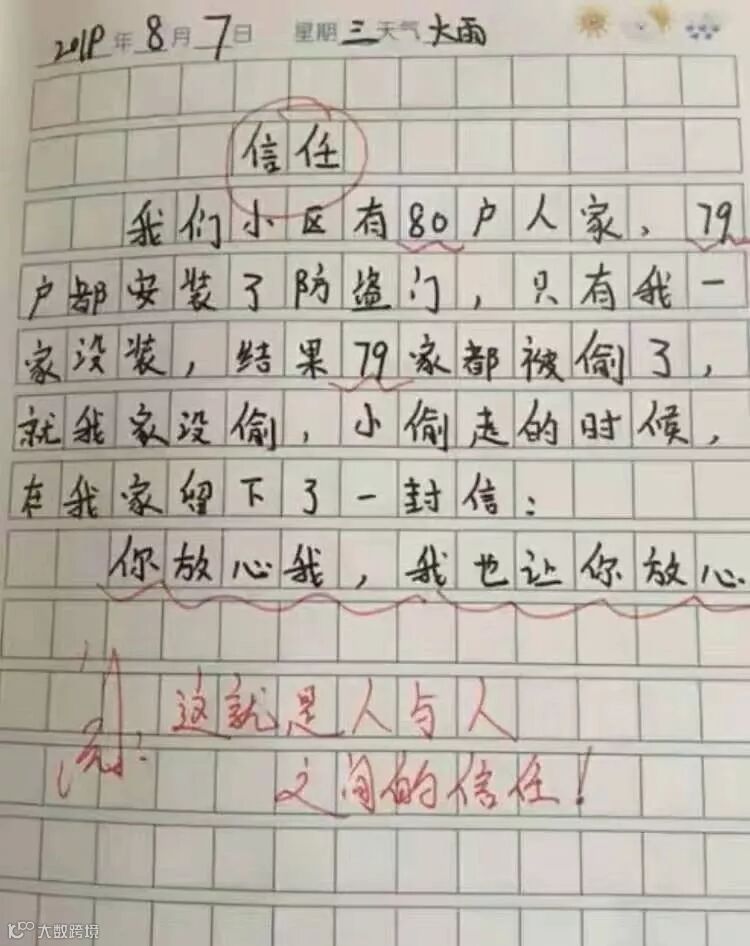 2019年8月7日 星期三天气大雨
信任
我们小区有80户人家,79
户都安装了防盗门,只有我一
家没装,结果79家都被偷了,
就我家没偷,小偷走的时候,
在我家留下了一封信:
你放心我,我也让你放心
这就是人与人
之间的信任!
大数跨境